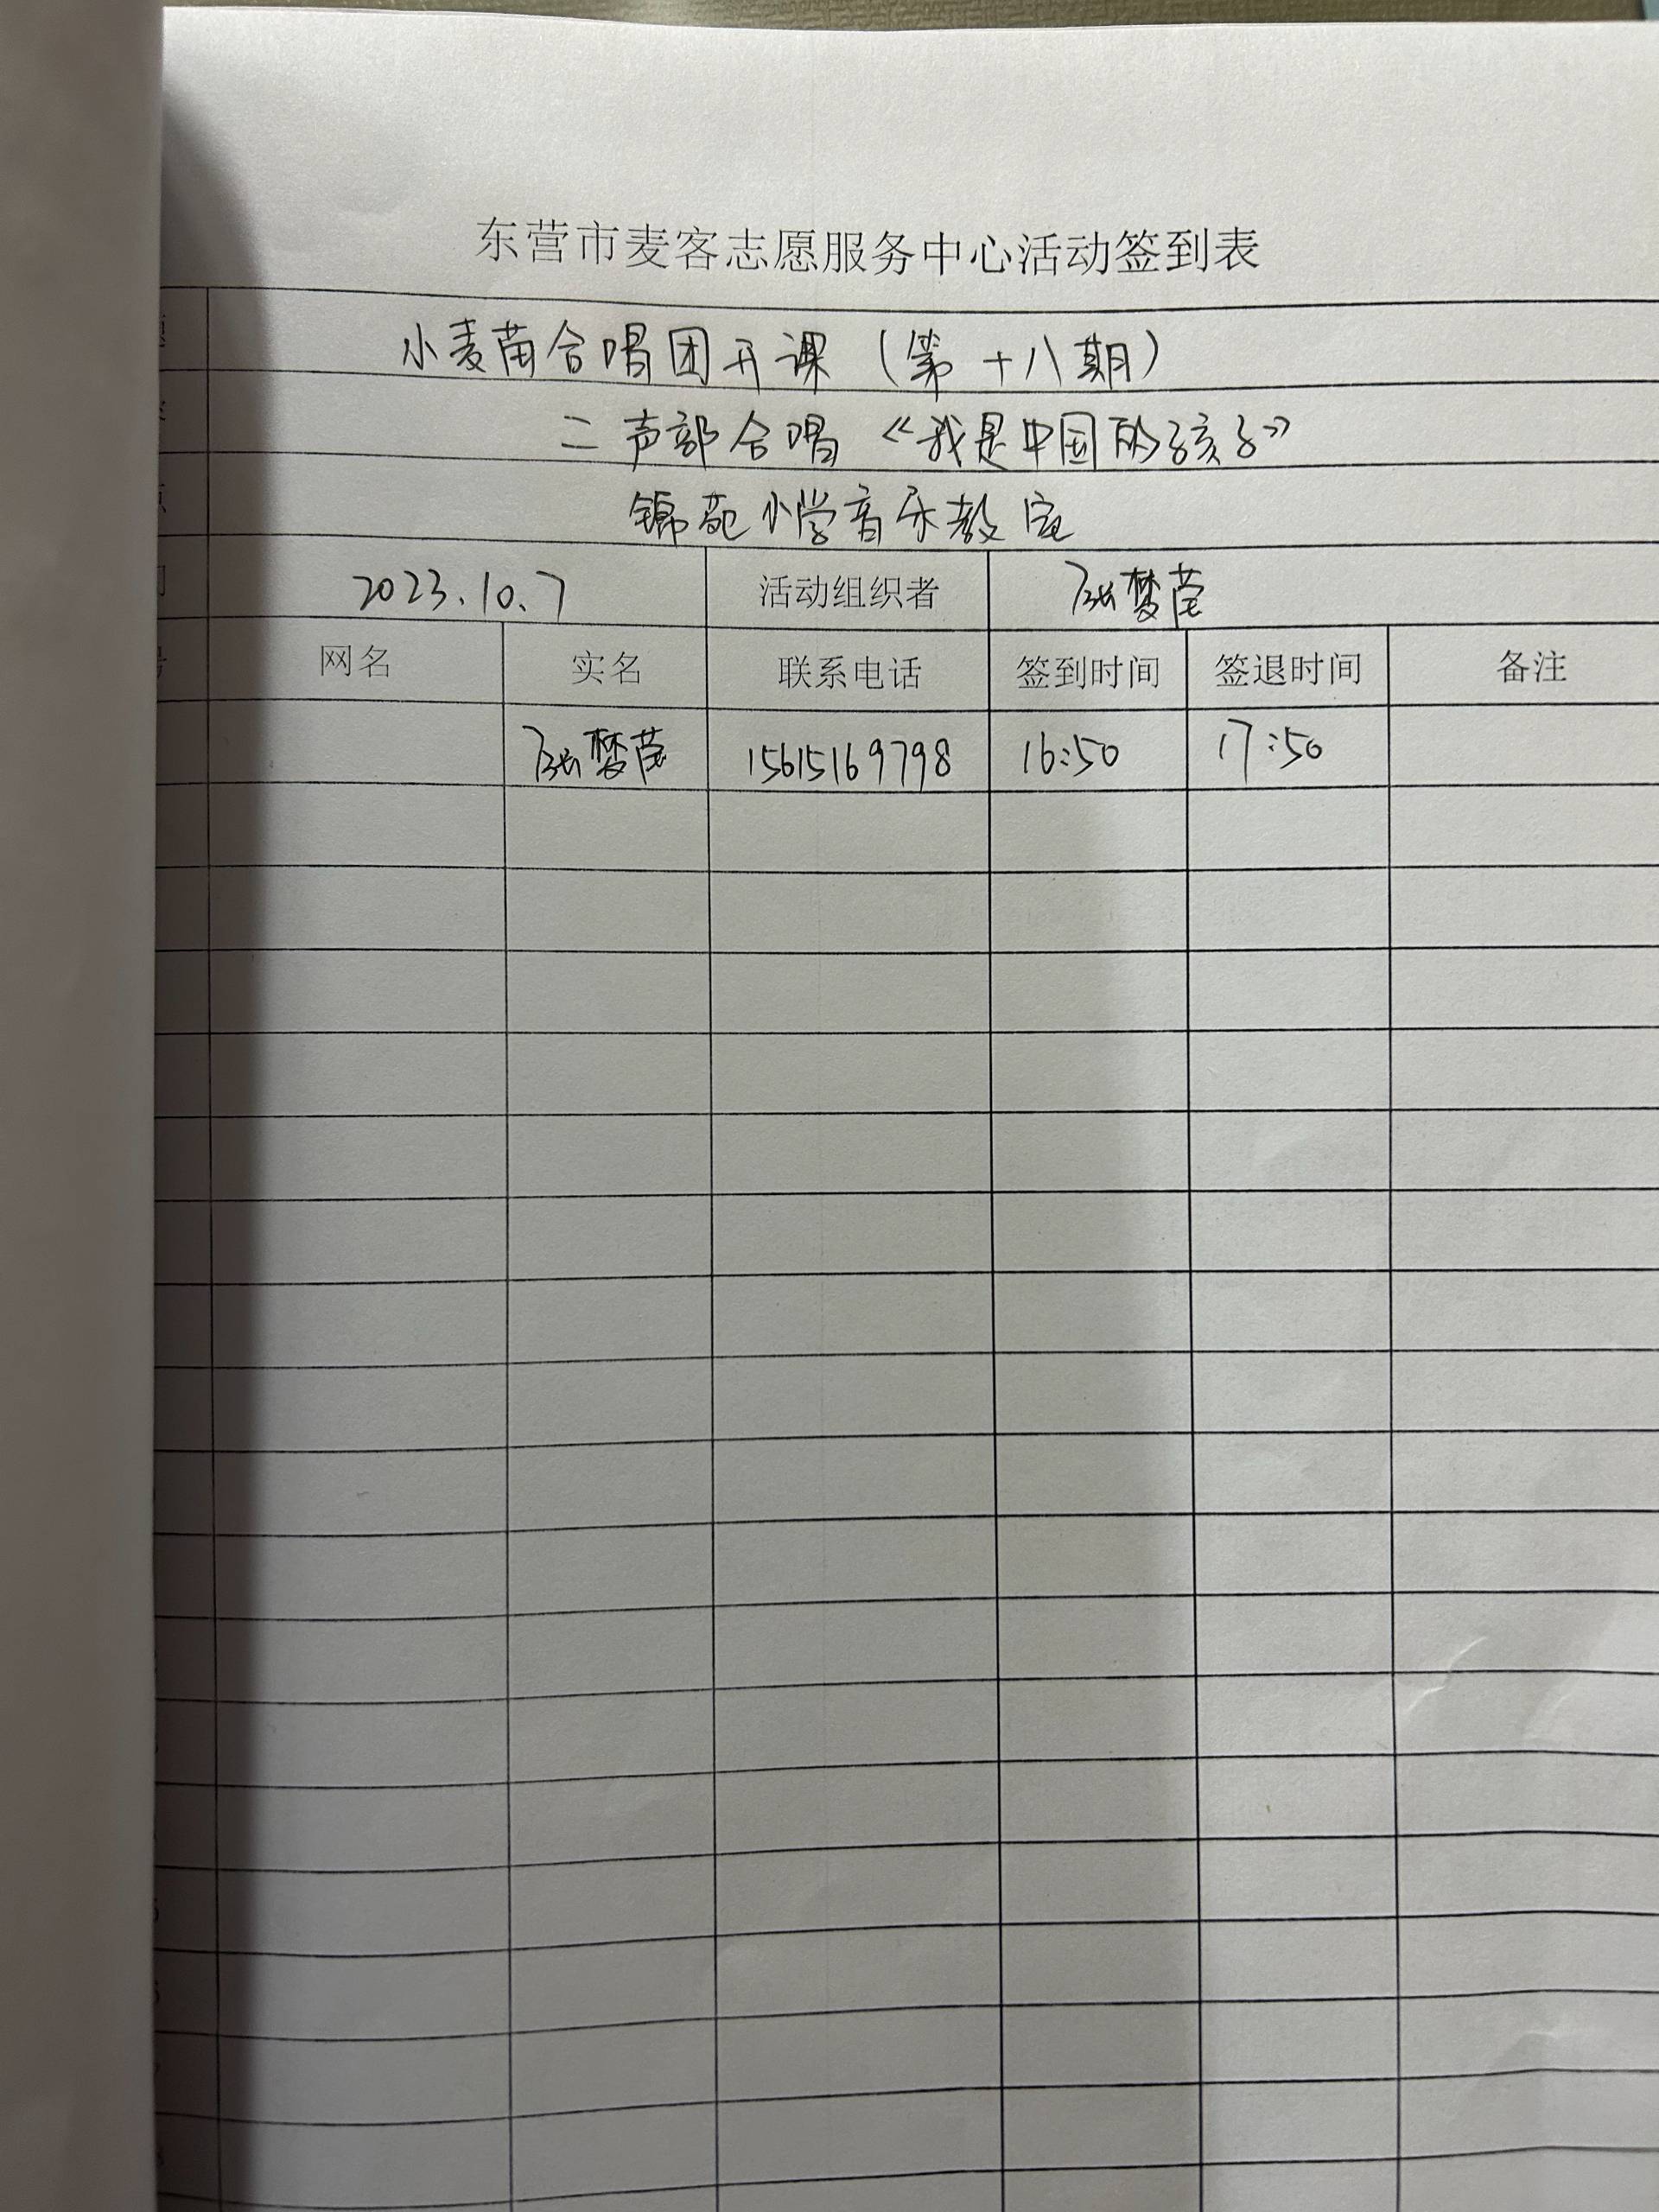 东营市麦客志愿服务中心活动签到表
小麦苗合唱团开课（第十八期）
二声部合唱《我是中国的孩子》
锦苑小学音乐教室
2023.10.7 活动组织者 张梦莹
网名 实名 联系电话 签到时间 签退时间 备注
张梦莹 15615169798 16:50 17:50